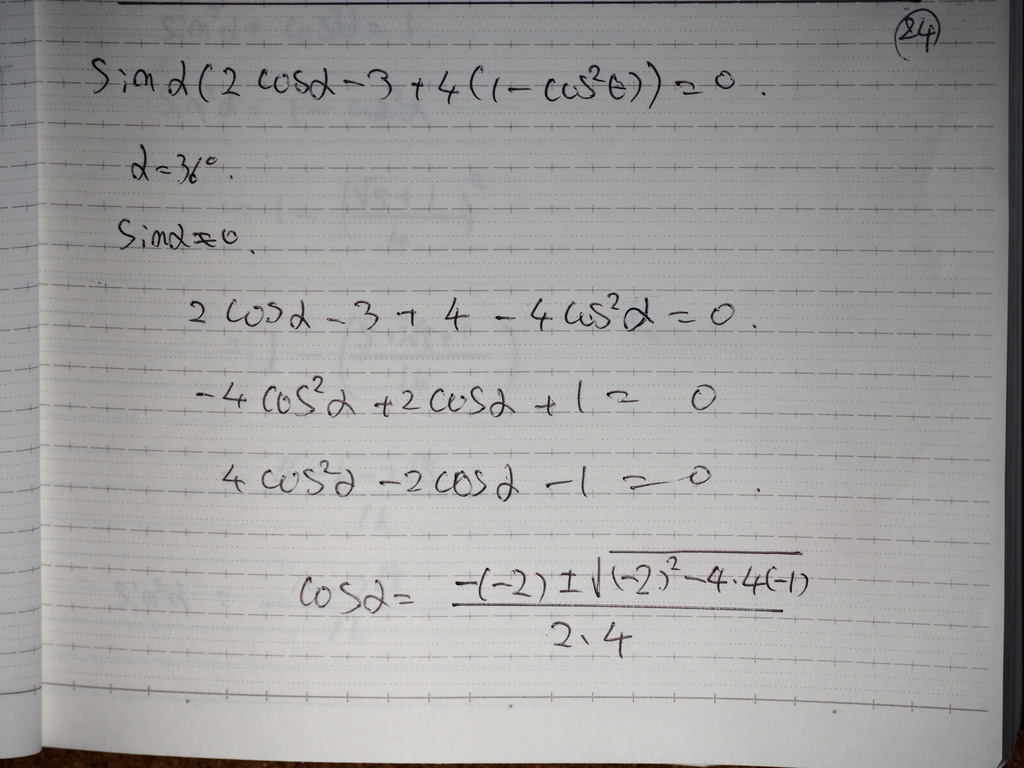 24
Sin α(2 cosα - 3 + 4(1 - cos²θ)) = 0.
α = 36°.
Sinα ≠ 0.
2 cosα - 3 + 4 - 4 cos²α = 0.
-4 cos²α + 2 cosα + 1 = 0
4 cos²α - 2 cosα - 1 = 0.
cosα = (-(-2) ± √((-2)² - 4·4(-1))) / (2·4)